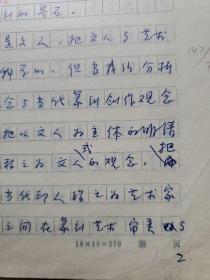 是文人，把文人与艺术
但当我们分析
念与当代篆刻创作观念
把以文人为主体的明清
式
称之为文人的观念，把
当代印人称之为艺术家
之间在篆刻艺术审美 以与
18×15=270 第 页
2